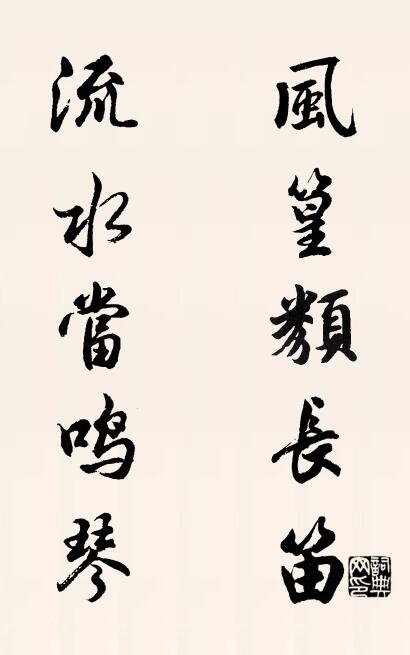 風篁類長笛
流水當鳴琴
詞典网印